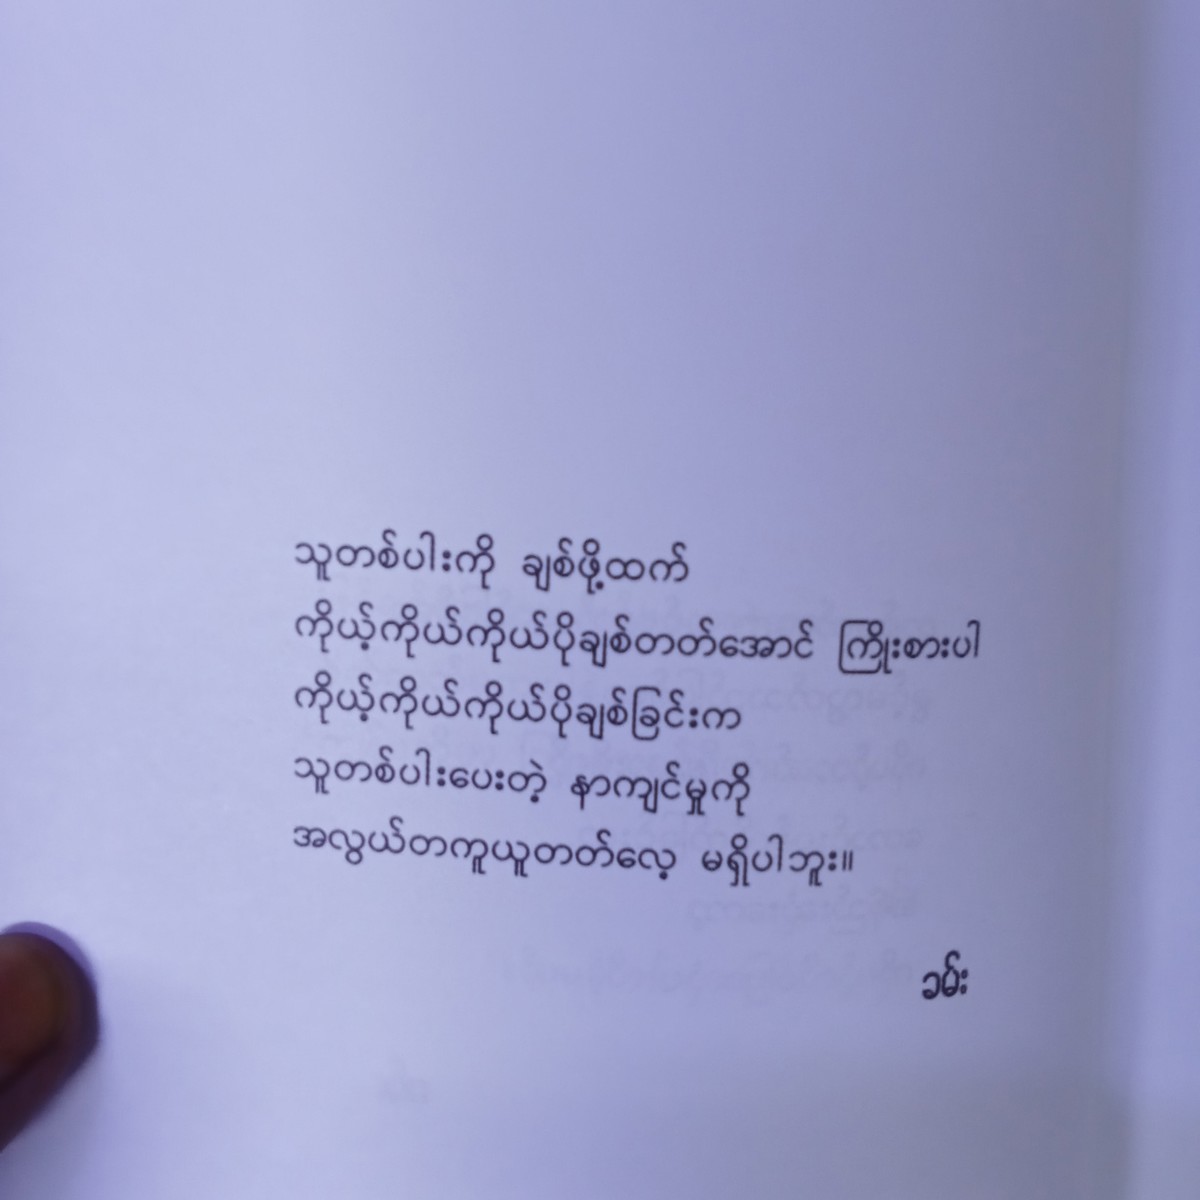 သူတစ်ပါးကို ချစ်ဖို့ထက်
ကိုယ့်ကိုယ်ကိုယ်ပိုချစ်တတ်အောင် ကြိုးစားပါ
ကိုယ့်ကိုယ်ကိုယ်ပိုချစ်ခြင်းက
သူတစ်ပါးပေးတဲ့ နာကျင်မှုကို
အလွယ်တကူယူတတ်လေ့ မရှိပါဘူး။
ခမ်း